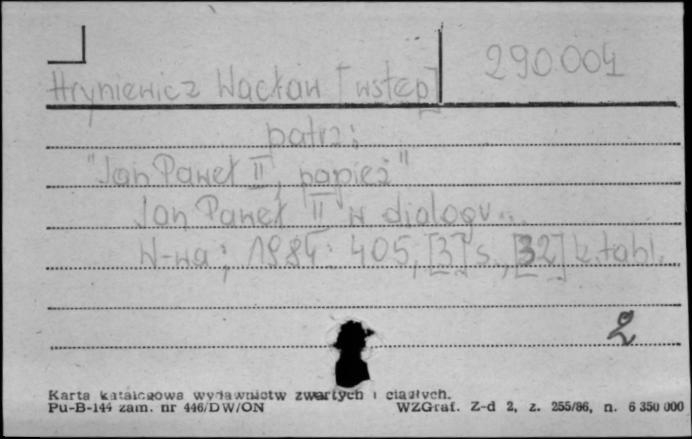 290004
Hryniewicz Wacław [wstęp]
patrz:
"Jan Paweł II, papież"
Jan Paweł II w dialogu...
W-wa; 1984: 405, [3] s., [32] k. tabl.
2
Karta katalogowa wydawnictw zwartych i ciągłych.
Pu-B-144 zam. nr 446/DW/ON WZGraf. Z-d 2, z. 255/86, n. 6 350 000